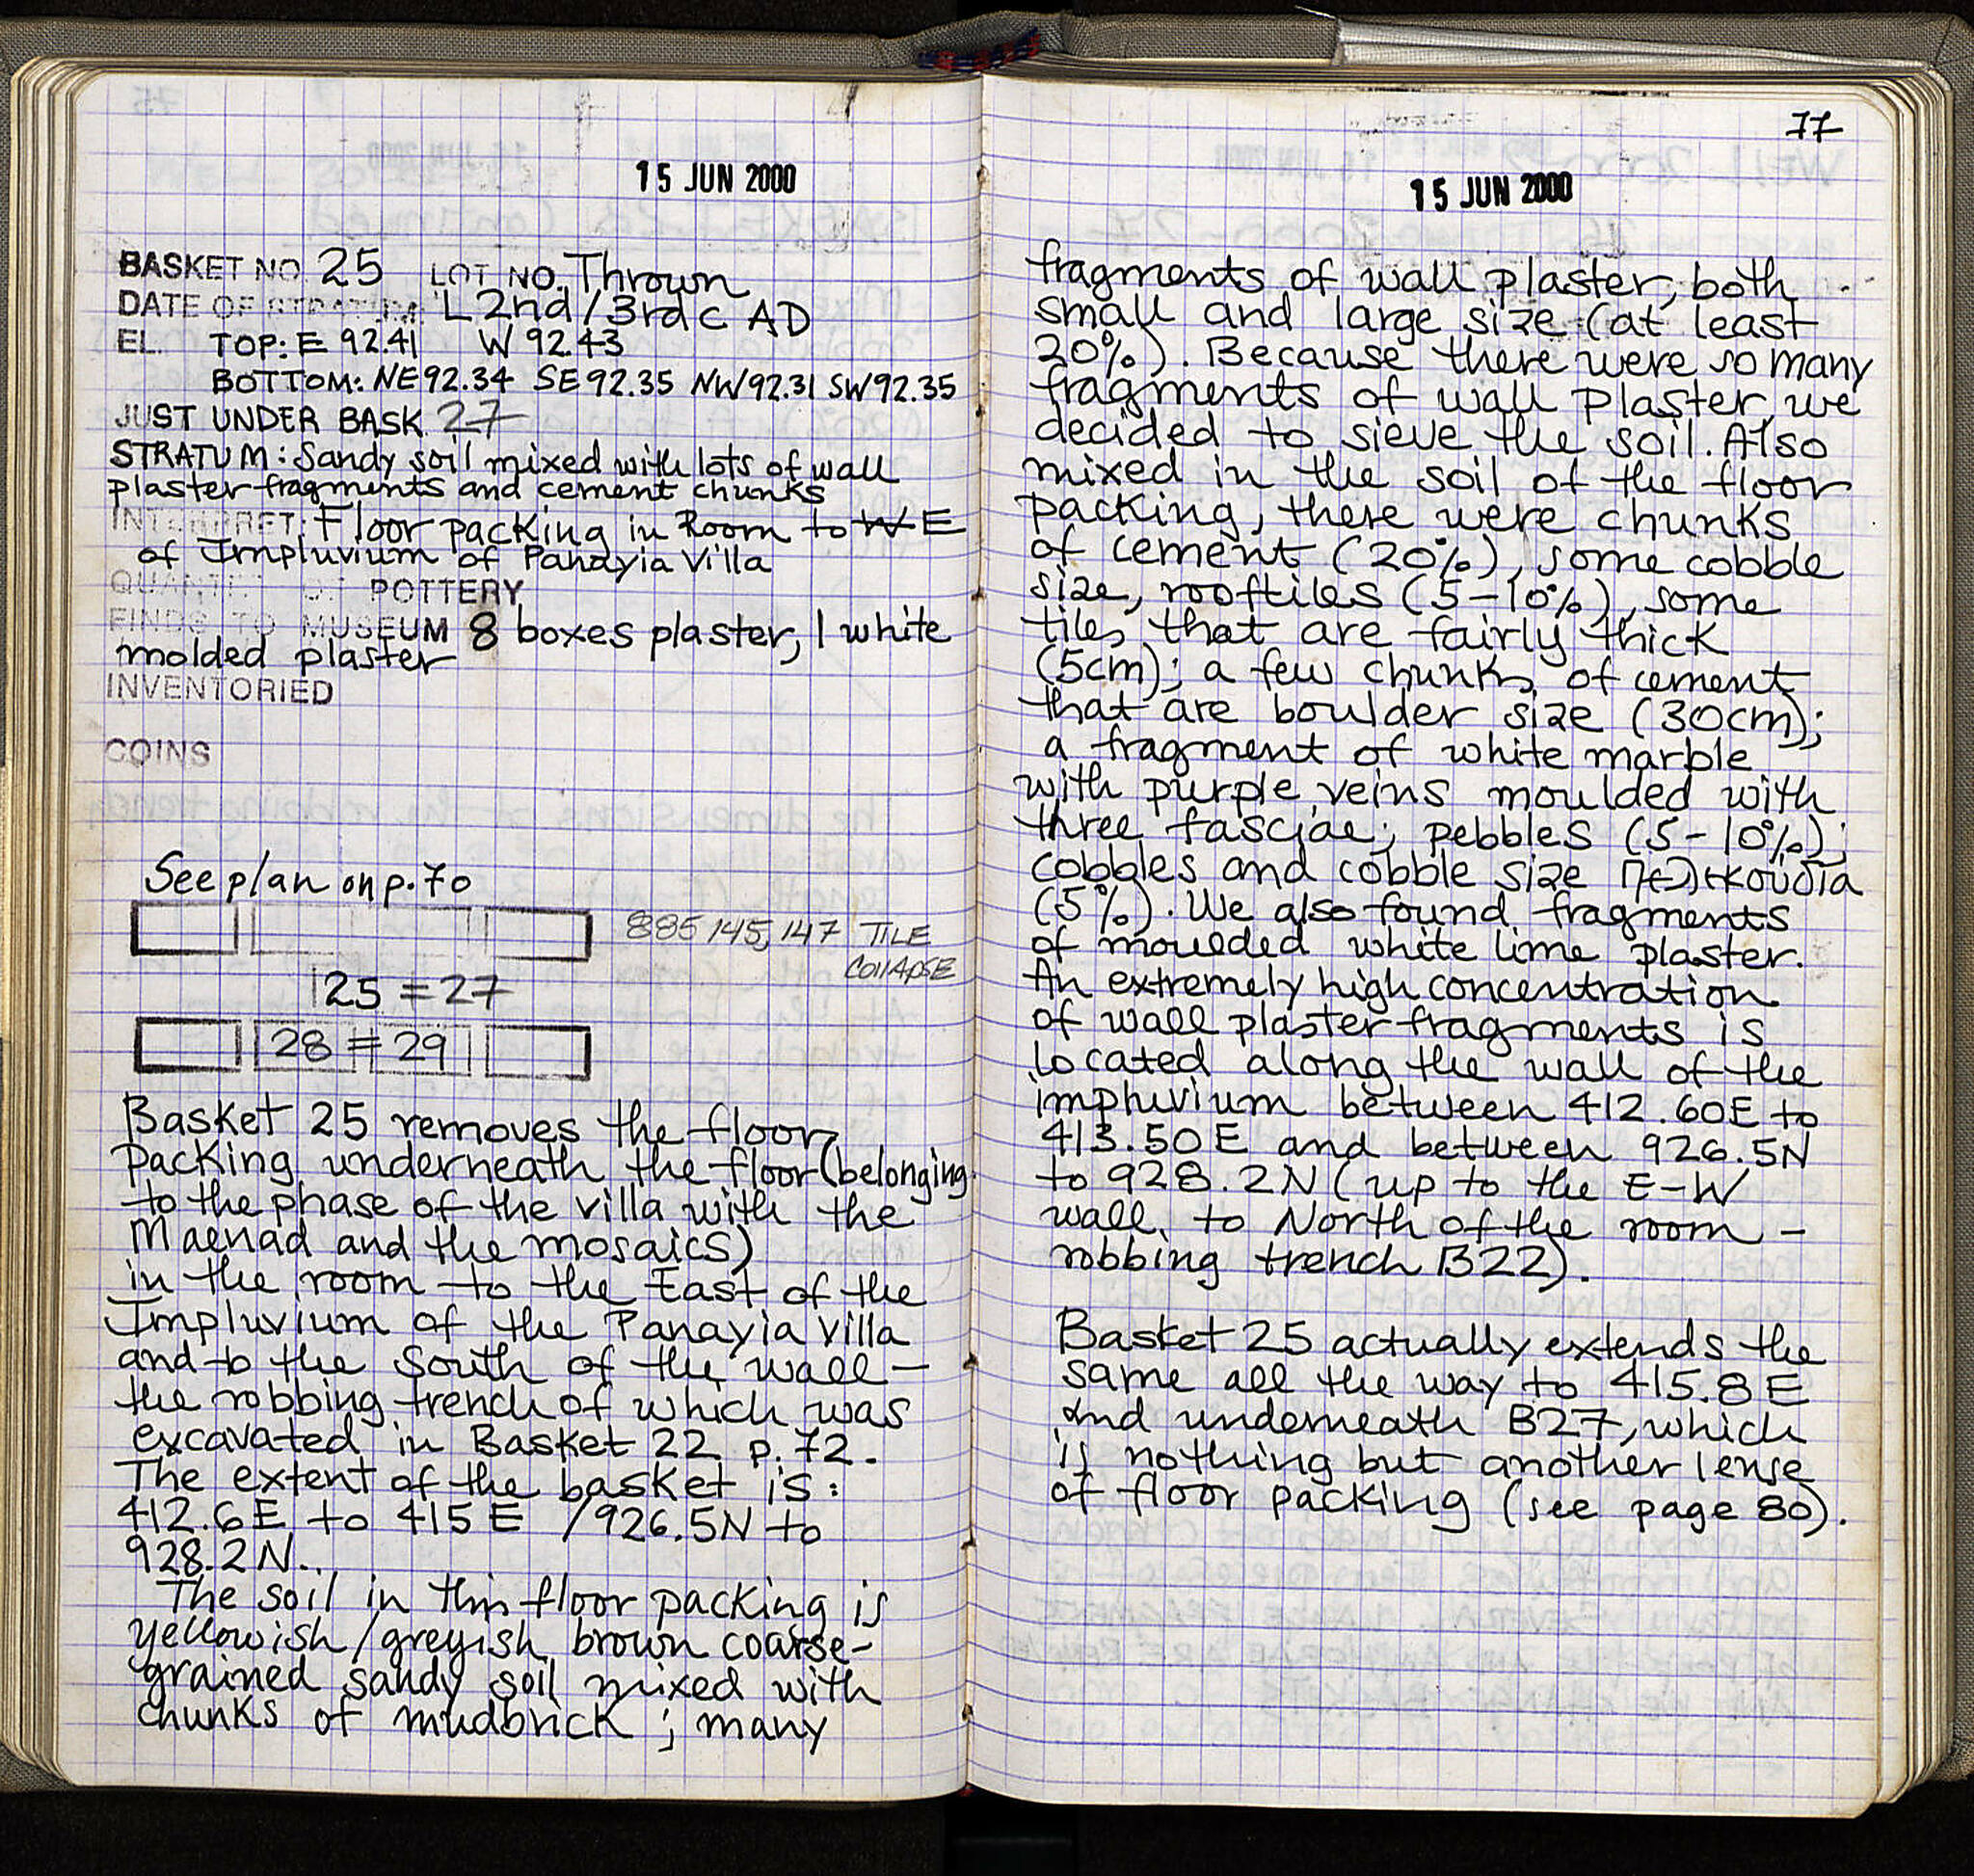 15 JUN 2000
BASKET NO. 25 LOT NO. Thrown
DATE OF STRATUM: L 2nd/3rd c AD
EL. TOP: E 92.41 W 92.43
BOTTOM: NE 92.34 SE 92.35 NW 92.31 SW 92.35
JUST UNDER BASK. 27
STRATUM: Sandy soil mixed with lots of wall
plaster fragments and cement chunks
INTERPRET: Floor packing in Room to W E
of Impluvium of Panayia Villa
QUANTITY OF POTTERY
FINDS TO MUSEUM 8 boxes plaster, 1 white
molded plaster
INVENTORIED
COINS
See plan on p. 70
885 145, 147 TILE
COllAPSE
25 = 27
28 = 29
Basket 25 removes the floor
packing underneath the floor (belonging
to the phase of the villa with the
Maenad and the mosaics)
in the room to the East of the
Impluvium of the Panayia Villa
and to the South of the wall –
the robbing trench of which was
excavated in Basket 22 p. 72.
The extent of the basket is:
412.6E to 415 E / 926.5N to
928.2N.
The soil in this floor packing is
yellowish/greyish brown coarse-
grained sandy soil mixed with
chunks of mudbrick ; many
77
15 JUN 2000
fragments of wall plaster, both
small and large size (at least
20%). Because there were so many
fragments of wall plaster, we
decided to sieve the soil. Also
mixed in the soil of the floor
packing, there were chunks
of cement (20%), some cobble
size, rooftiles (5-10%), some
tiles that are fairly thick
(5cm); a few chunks of cement
that are boulder size (30cm);
a fragment of white marble
with purple veins moulded with
three fasciae; pebbles (5-10%);
cobbles and cobble size πελεκούδια
(5%). We also found fragments
of moulded white lime plaster.
An extremely high concentration
of wall plaster fragments is
located along the wall of the
impluvium between 412.60E to
413.50E and between 926.5N
to 928.2N (up to the E-W
wall to North of the room –
robbing trench B22).
Basket 25 actually extends the
same all the way to 415.8 E
and underneath B27, which
is nothing but another lense
of floor packing (see page 80).